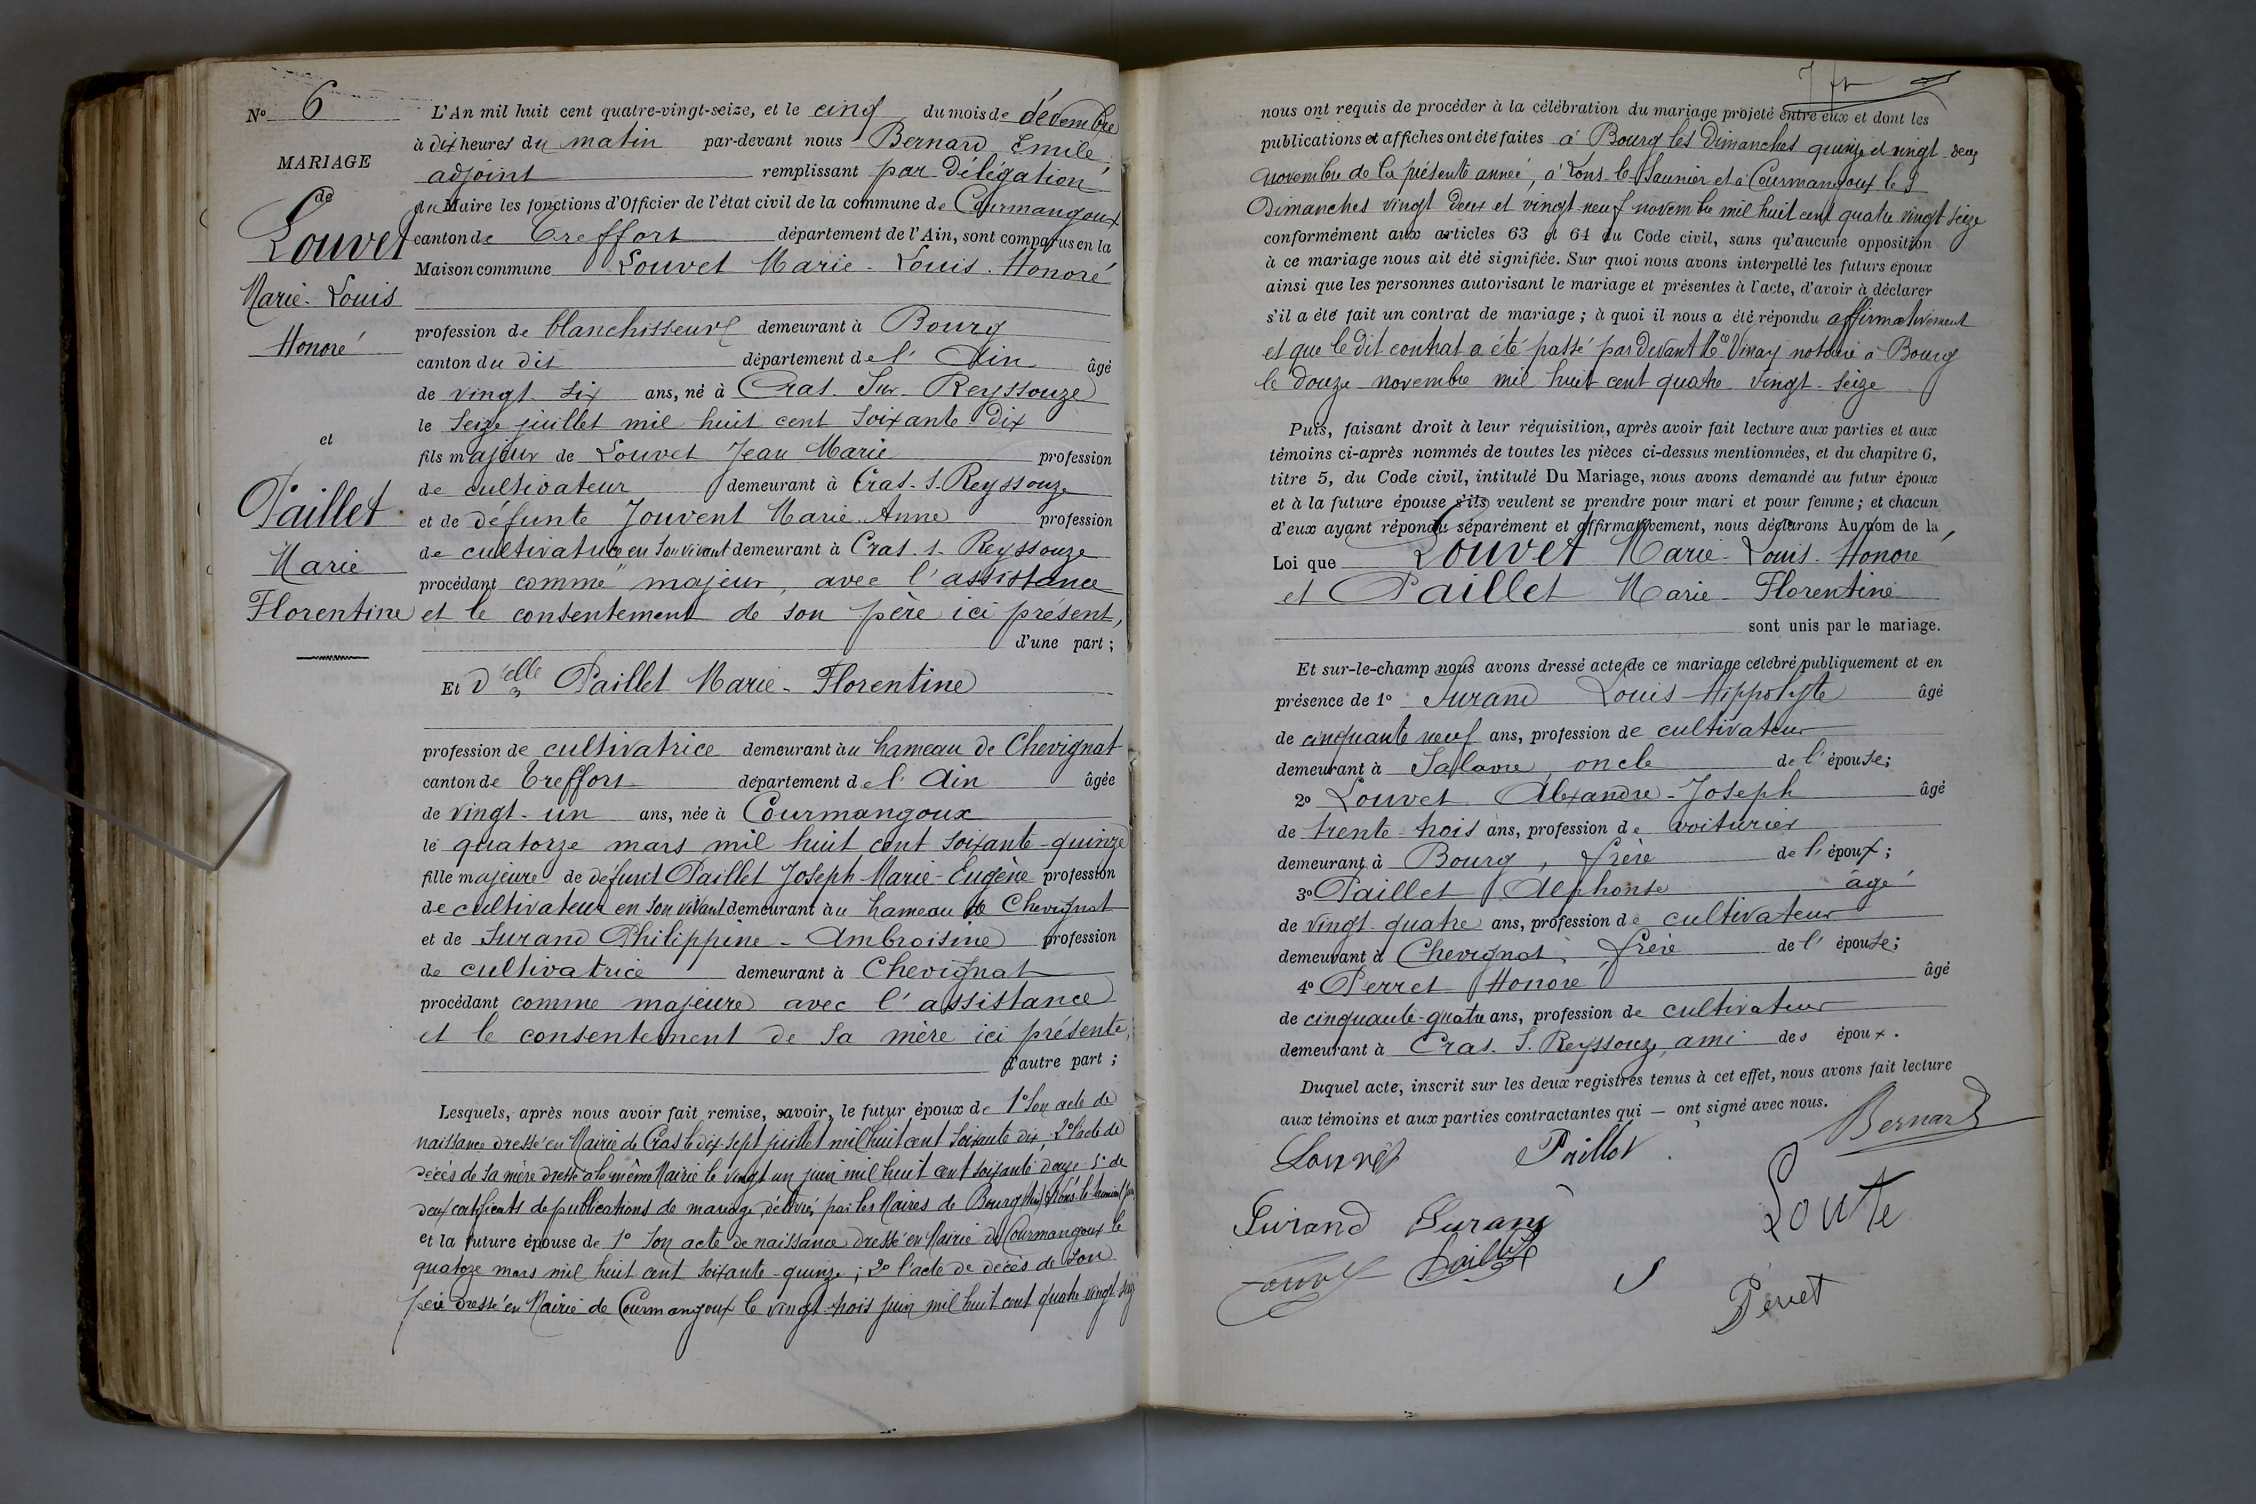 N° 6
MARIAGE
de
Louvet
Marie-Louis
Honoré
et
Paillet
Marie
Florentine
L'An mil huit cent quatre-vingt-seize, et le cinq du mois de décembre
à dix heures du matin par-devant nous Bernard Emile,
adjoint remplissant par délégation
du Maire les fonctions d'Officier de l'état civil de la commune de Courmangoux
canton de Treffort département de l'Ain, sont comparus en la
Maison commune Louvet Marie-Louis-Honoré
profession de blanchisseur demeurant à Bourg
canton du dit département de l'Ain âgé
de vingt-six ans, né à Cras-Sur-Reyssouze
le seize juillet mil huit cent soixante dix
fils majeur de Louvet Jean Marie profession
de cultivateur demeurant à Cras-s.Reyssouze
et de défunte Jouvent Marie-Anne profession
de cultivatrice en son vivant demeurant à Cras-s-Reyssouze
procédant comme majeur, avec l'assistance
et le consentement de son père ici présent,
d'une part ;
Et Delle Paillet Marie-Florentine
profession de cultivatrice demeurant au hameau de Chevignat
canton de Treffort département de l'Ain âgée
de vingt-un ans, née à Courmangoux
le quatorze mars mil huit cent soixante-quinze
fille majeure de défunt Paillet Joseph-Marie-Eugène profession
de cultivateur en son vivant demeurant au hameau de Chevignat
et de Surand Philippine-Ambroisine profession
de cultivatrice demeurant à Chevignat
procédant comme majeure avec l'assistance
et le consentement de sa mère ici présente,
d'autre part ;
Lesquels, après nous avoir fait remise, savoir, le futur époux de 1° son acte de
naissance dressé en Mairie de Cras le dix-sept juillet mil huit cent soixante dix, 2° l'acte de
décès de sa mère dressé à la même Mairie le vingt un juin mil huit cent soixante douze 3° de
deux certificats de publications de mariage, délivrés par les Maires de Bourg
et la future épouse de 1° son acte de naissance dressé en Mairie de Courmangoux le
quatorze mars mil huit cent soixante-quinze ; 2° l'acte de décès de son
père dressé en Mairie de Courmangoux le vingt-trois juin mil huit cent quatre vingt seize
nous ont requis de procéder à la célébration du mariage projeté entre eux et dont les
publications et affiches ont été faites à Bourg les Dimanches quinze et vingt-deux
novembre de la présente année, à Lons-le-Saunier et à Courmangoux les
Dimanches vingt deux et vingt-neuf novembre mil huit cent quatre vingt seize
conformément aux articles 63 et 64 du Code civil, sans qu'aucune opposition
à ce mariage nous ait été signifiée. Sur quoi nous avons interpellé les futurs époux
ainsi que les personnes autorisant le mariage et présentes à l'acte, d'avoir à déclarer
s'il a été fait un contrat de mariage ; à quoi il nous a été répondu affirmativement
et que le dit contrat a été passé par devant Me Vinay notaire à Bourg
le douze novembre mil huit cent quatre vingt-seize
Puis, faisant droit à leur réquisition, après avoir fait lecture aux parties et aux
témoins ci-après nommés de toutes les pièces ci-dessus mentionnées, et du chapitre 6,
titre 5, du Code civil, intitulé Du Mariage, nous avons demandé au futur époux
et à la future épouse s'ils veulent se prendre pour mari et pour femme ; et chacun
d'eux ayant répondu séparément et affirmativement, nous déclarons Au nom de la
Loi que Louvet Marie-Louis-Honoré
et Paillet Marie-Florentine
sont unis par le mariage.
Et sur-le-champ nous avons dressé acte de ce mariage célébré publiquement et en
présence de 1° Surand Louis-Hippolyte âgé
de cinquante neuf ans, profession de cultivateur
demeurant à Salavre, oncle de l'épouse ;
2° Louvet Alexandre-Joseph âgé
de trente-trois ans, profession de voiturier
demeurant à Bourg, frère de l'époux ;
3° Paillet Alphonse âgé
de vingt-quatre ans, profession de cultivateur
demeurant à Chevignat, frère de l'épouse ;
4° Perret Honoré âgé
de cinquante-quatre ans, profession de cultivateur
demeurant à Cras.S.Reyssouze, ami des époux.
Duquel acte, inscrit sur les deux registres tenus à cet effet, nous avons fait lecture
aux témoins et aux parties contractantes qui — ont signé avec nous.
Bernard
Louvet Paillet
Surand Surand
Paillet
Perret